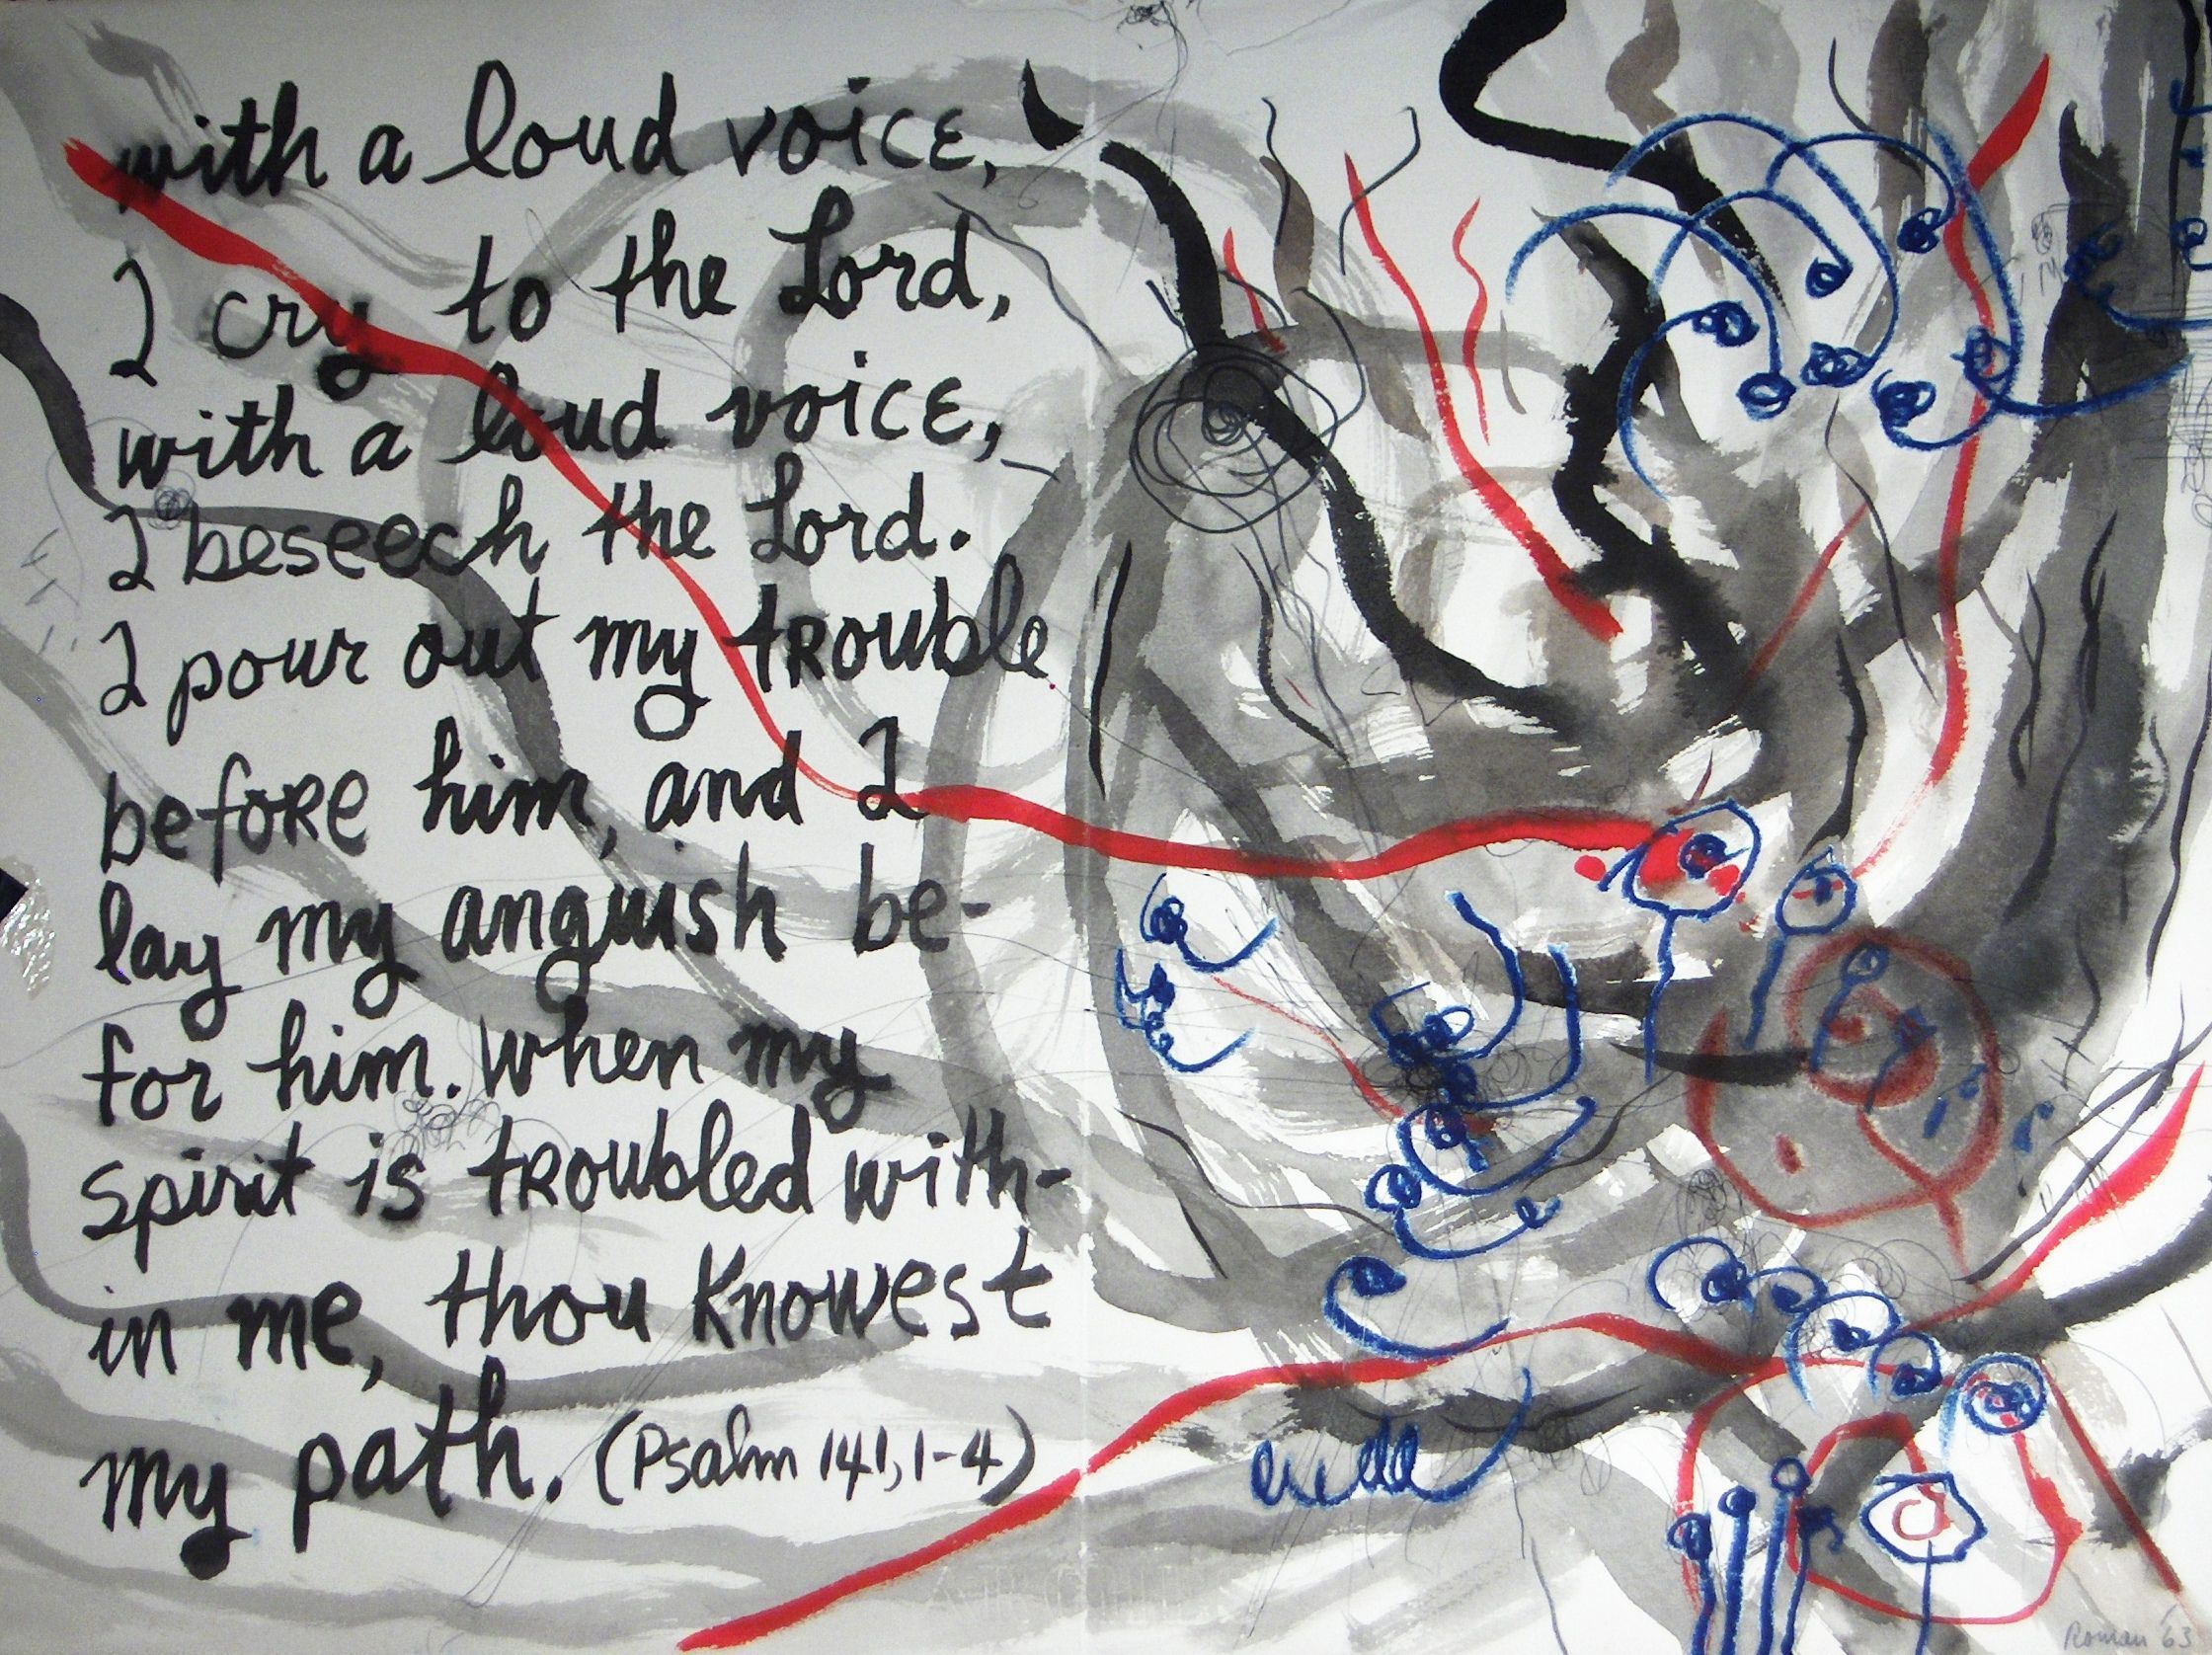 with a loud voice,
I cry to the Lord,
with a loud voice,
I beseech the Lord.
I pour out my trouble
before him, and I
lay my anguish be-
for him. When my
spirit is troubled with-
in me, thou knowest
my path. (Psalm 141, 1-4)
Roman '63